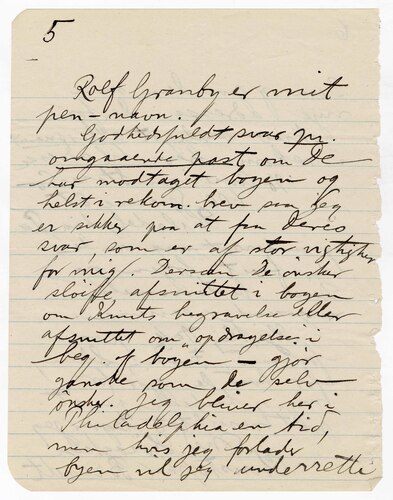 5
Rolf Granby er mit
pen-navn.
Godhedsfuldt svar pr.
omgaaende post om De
har modtaget bogen og
helst i rekom. brev saa jeg
er sikker paa at faa Deres
svar, som er af stor vigtighed
for mig. Dersom De ønsker
sløife afsnittet i bogen
om Knuts begravelse eller
afsnittet om "opdragelse" i
beg. af bogen – gjør
ganske som De selv
ønsker. Jeg bliver her i
Philadelphia en tid,
men hvis jeg forlader
byen vil jeg underrette